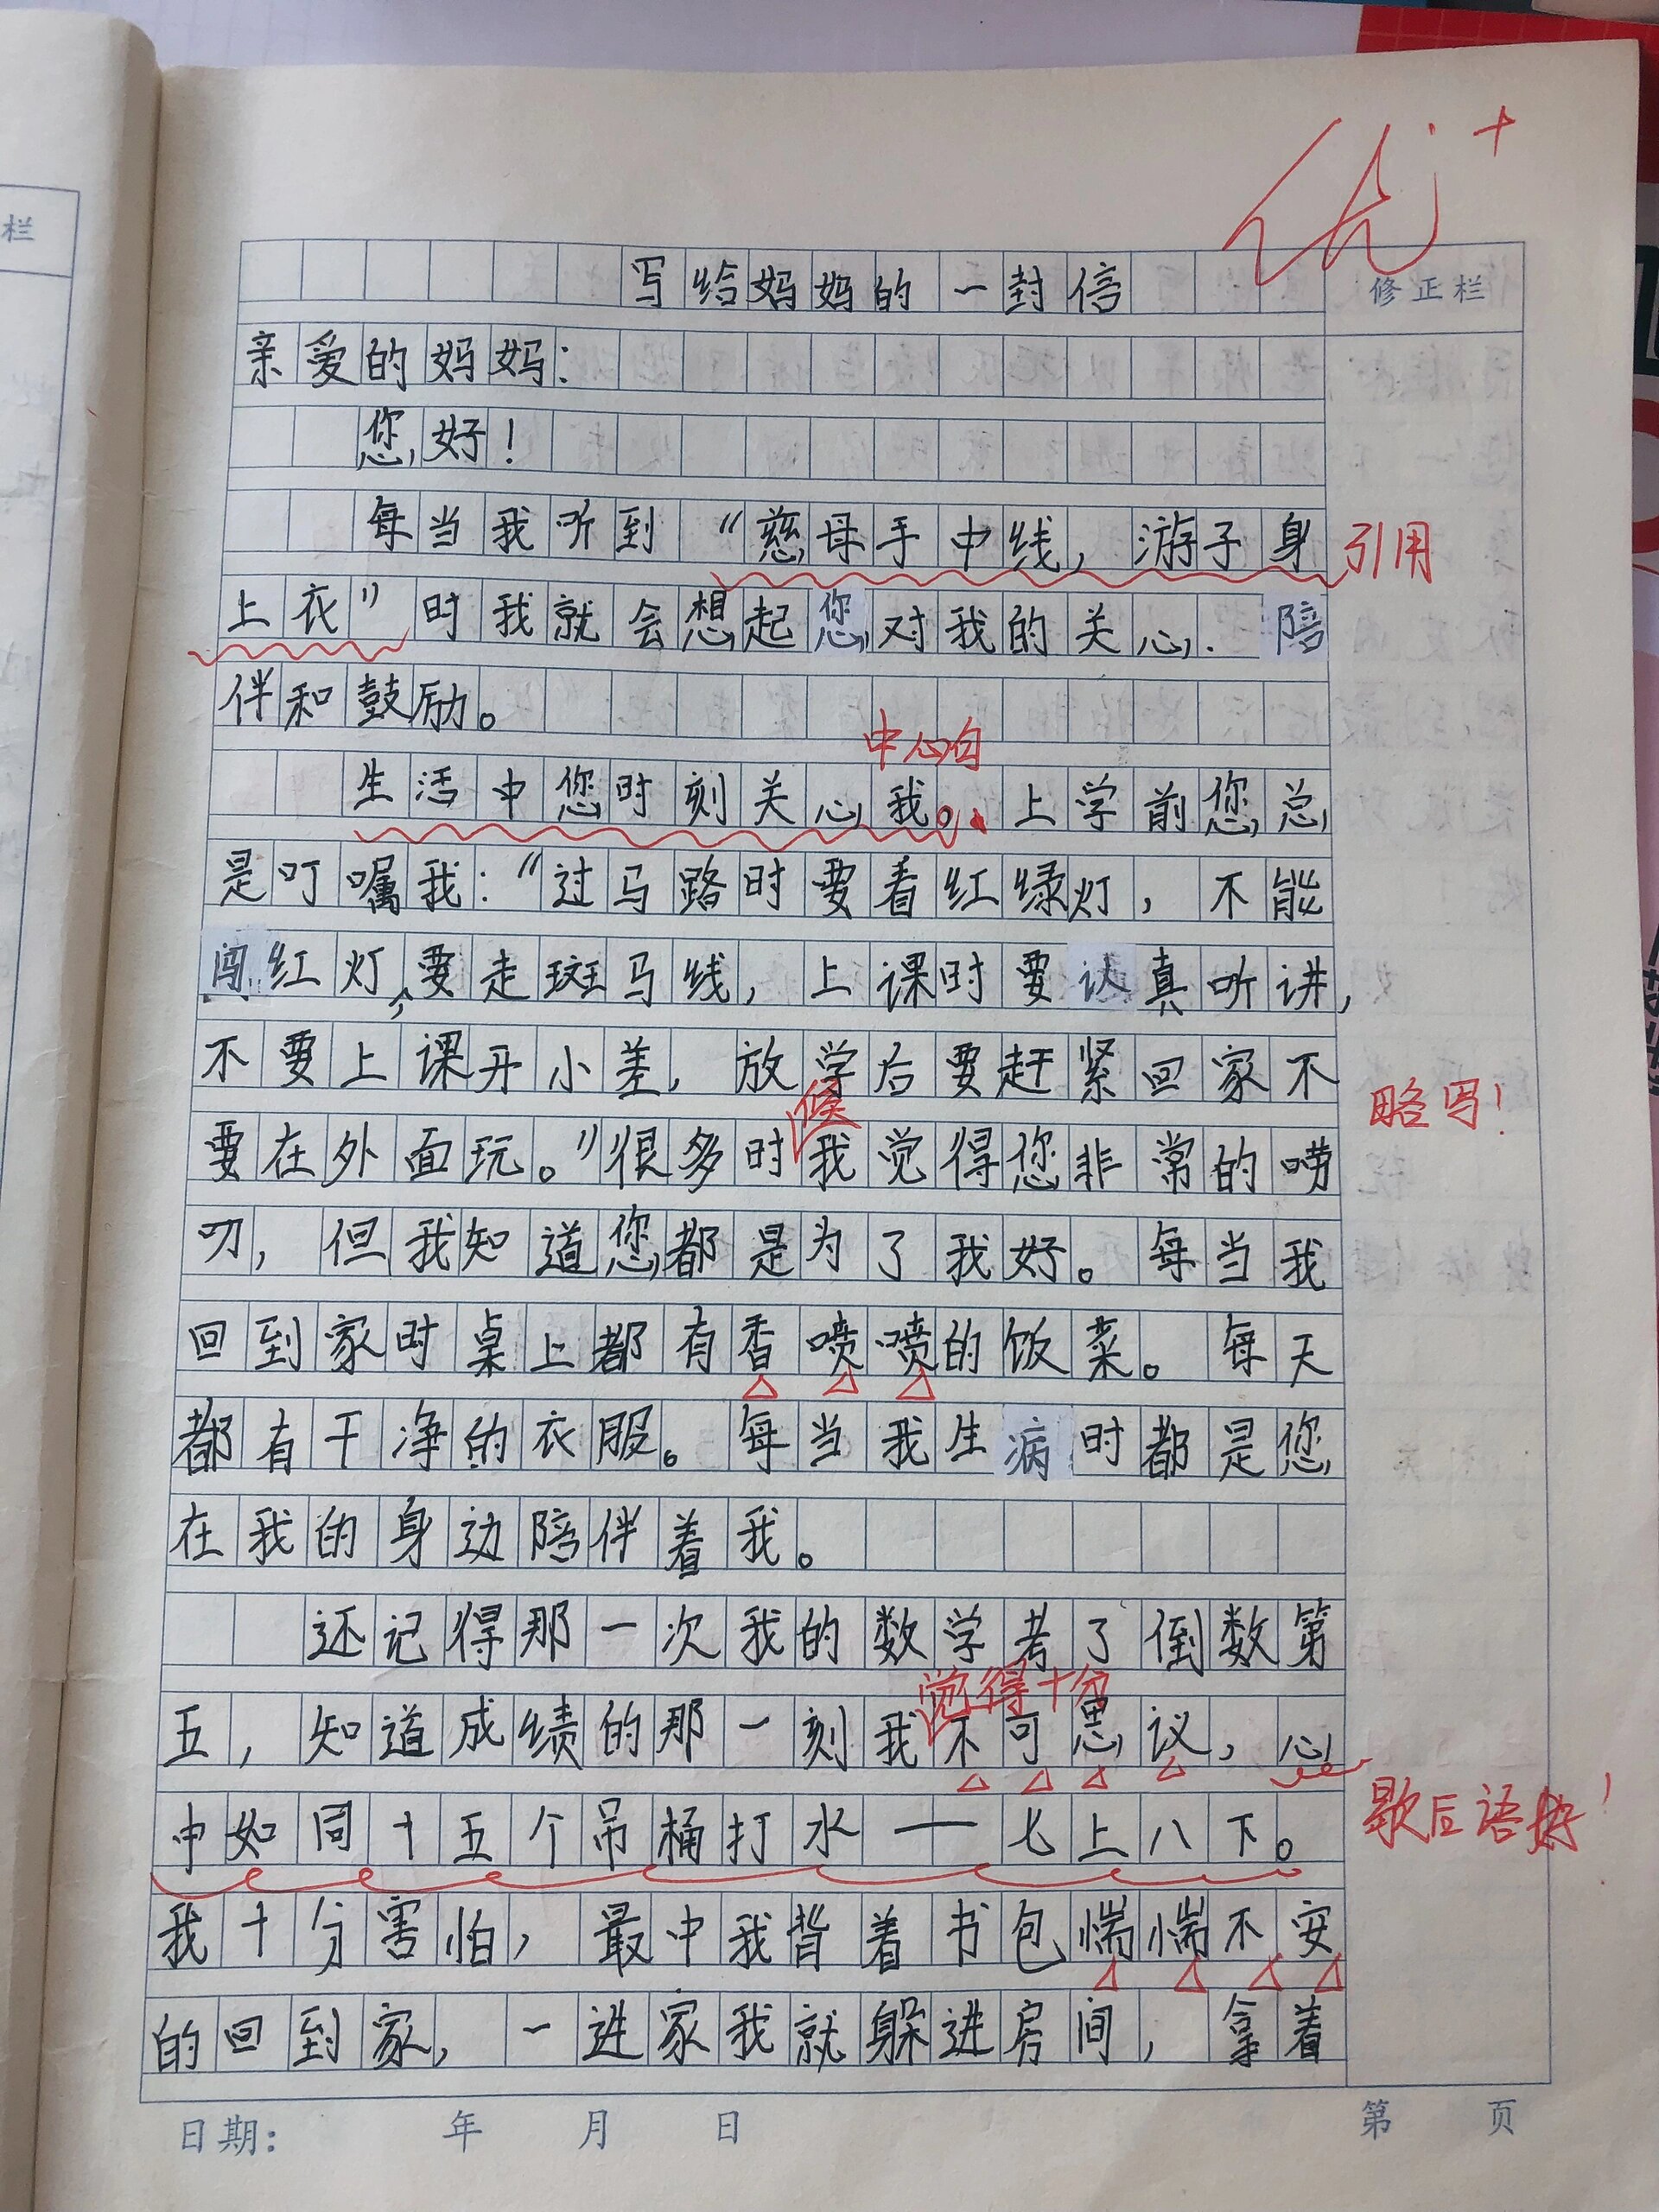 优+
栏
写给妈妈的一封信
修正栏
亲爱的妈妈：
您好！
每当我听到“慈母手中线，游子身
引用
上衣”时我就会想起您对我的关心、陪
伴和鼓励。
中心句
生活中您时刻关心我。上学前您总
是叮嘱我：“过马路时要看红绿灯，不能
闯红灯，要走斑马线，上课时要认真听讲，
不要上课开小差，放学后要赶紧回家不
略写！
候
要在外面玩。”很多时我觉得您非常的唠
叨，但我知道您都是为了我好。每当我
回到家时桌上都有香喷喷的饭菜。每天
都有干净的衣服。每当我生病时都是您
在我的身边陪伴着我。
还记得那一次我的数学考了倒数第
觉得十分
五，知道成绩的那一刻我不可思议，心
中如同十五个吊桶打水——七上八下。
歇后语好！
我十分害怕，最中我背着书包惴惴不安
的回到家，一进家我就躲进房间，拿着
日期： 年 月 日
第 页